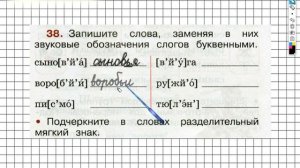 38. Запишите слова, заменяя в них
звуковые обозначения слогов буквенными.
сыно[в'й'а́] сыновья [в'й'у́]га
воро[б'й'и́] воробьи ру[жй'о́]
пи[с'мо́] тю[л'э́н']
• Подчеркните в словах разделительный
мягкий знак.